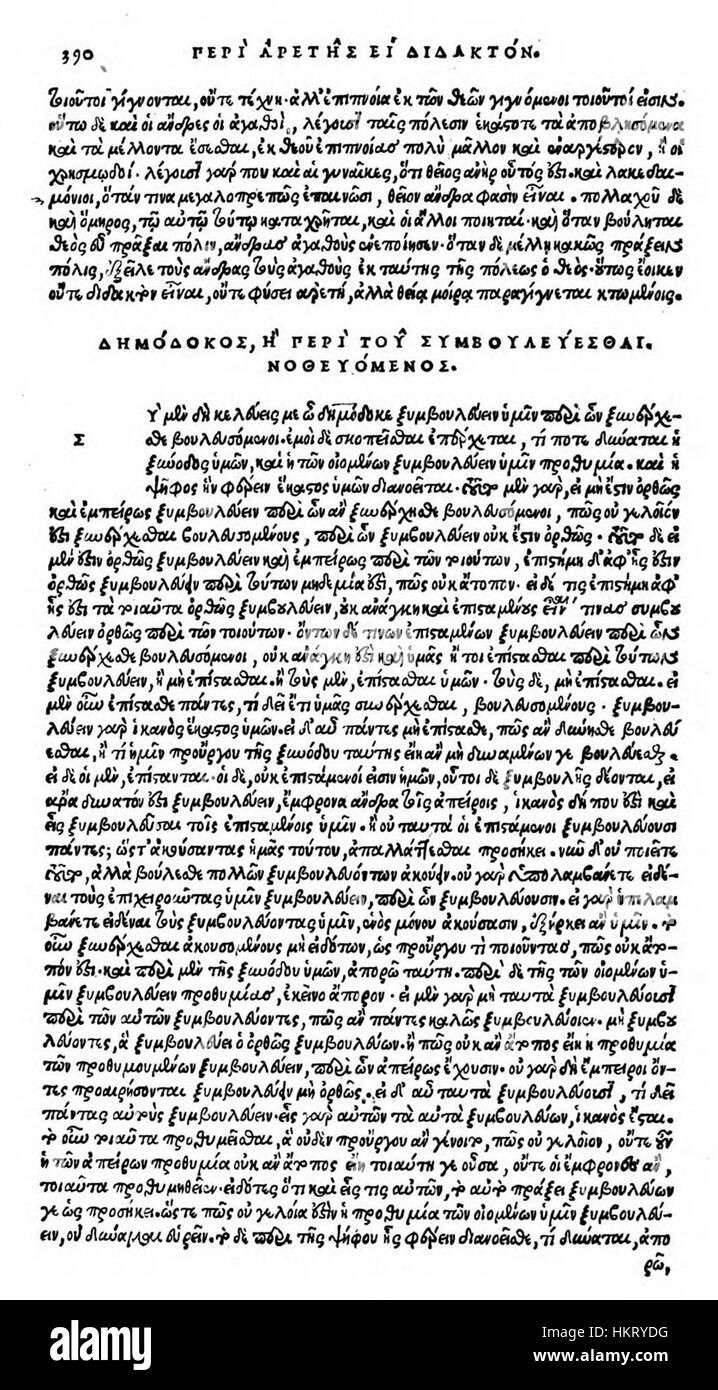 390 ΠΕΡῚ ἈΡΕΤΗ͂Σ ΕἸ ΔΙΔΑΚΤΌΝ.
τοιοῦτοι γίγνονται, οὔτε τέχνη· ἀλλ' ἐπιπνοία ἐκ τῶν θεῶν γιγνόμενοι τοιοῦτοί εἰσιν.
οὕτω δὲ καὶ οἱ ἄνδρες οἱ ἀγαθοὶ, λέγουσι ταῖς πόλεσιν ἑκάστοτε τὰ ἀποβησόμενα
καὶ τὰ μέλλοντα ἔσεσθαι, ἐκ θεοῦ ἐπιπνοίας πολὺ μᾶλλον καὶ ἐναργέστερον, ἢ οἱ
χρησμῳδοί· λέγουσι γάρ που καὶ αἱ γυναῖκες, ὅτι θεῖος ἀνὴρ οὗτός ἐστι· καὶ λακεδαι-
μόνιοι, ὅταν τινα μεγαλοπρεπῶς ἐπαινῶσι, θεῖον ἄνδρα φασὶν εἶναι. πολλαχοῦ δὲ
καὶ ὅμηρος, τῷ αὐτῷ τούτῳ καταχρῆται, καὶ οἱ ἄλλοι ποιηταί· καὶ ὅταν βούληται
θεὸς εὖ πρᾶξαι πόλιν, ἄνδρας ἀγαθοὺς ἐνεποίησεν· ὅταν δὲ μέλλῃ κακῶς πράξειν
πόλις, ἐξεῖλε τοὺς ἄνδρας τοὺς ἀγαθοὺς ἐκ ταύτης τῆς πόλεως ὁ θεός· οὕτως ἔοικεν
οὔτε διδακτὸν εἶναι, οὔτε φύσει ἀρετὴ, ἀλλὰ θείᾳ μοίρᾳ παραγίγνεται κτωμένοις.
ΔΗΜΌΔΟΚΟΣ, Ἢ ΠΕΡῚ ΤΟΥ͂ ΣΥΜΒΟΥΛΕΎΕΣΘΑΙ.
ΝΟΘΕΥΌΜΕΝΟΣ.
Σ Ὺ μὲν δὴ κελεύεις με ὦ δημόδοκε ξυμβουλεύειν ὑμῖν περὶ ὧν ξυνέρχε-
σθε βουλευσόμενοι· ἐμοὶ δὲ σκοπεῖσθαι ἐπέρχεται, τί ποτε δύναται ἡ
ξύνοδος ὑμῶν, καὶ ἡ τῶν οἰομένων ξυμβουλεύειν ὑμῖν προθυμία. καὶ ἡ
ψῆφος ἣν φέρειν ἕκαστος ὑμῶν διανοεῖται· τοῦτο μὲν γὰρ, εἰ μὴ ἔστιν ὀρθῶς
καὶ ἐμπείρως ξυμβουλεύειν περὶ ὧν ἂν ξυνέρχησθε βουλευσόμενοι, πῶς οὐ γελοῖόν
ἐστι ξυνέρχεσθαι βουλευσομένους, περὶ ὧν ξυμβουλεύειν οὐκ ἔστιν ὀρθῶς· τοῦτο δὲ εἰ
μὲν ἔστιν ὀρθῶς ξυμβουλεύειν καὶ ἐμπείρως περὶ τῶν τοιούτων, ἐπιστήμη δ' ἀφ' ἧς ἔστιν
ὀρθῶς ξυμβουλεύειν περὶ τούτων μηδεμία ἐστὶ, πῶς οὐκ ἄτοπον· εἰ δέ τις ἐπιστήμη ἀφ'
ἧς ἐστὶ τὰ τοιαῦτα ὀρθῶς ξυμβουλεύειν, οὐκ ἀνάγκη καὶ ἐπισταμένους εἶναι τινὰς συμβου
λεύειν ὀρθῶς περὶ τῶν τοιούτων· ὄντων δέ τινων ἐπισταμένων ξυμβουλεύειν περὶ ὧν
ξυνέρχεσθε βουλευσόμενοι, οὐκ ἀνάγκη ἐστὶ καὶ ὑμᾶς ἤτοι ἐπίστασθαι περὶ τούτων
ξυμβουλεύειν, ἢ μὴ ἐπίστασθαι. ἢ τοὺς μὲν, ἐπίστασθαι ὑμῶν· τοὺς δὲ, μὴ ἐπίστασθαι. εἰ
μὲν οὖν ἐπίστασθε πάντες, τί δεῖ ἔτι ὑμᾶς συνέρχεσθαι, βουλευσομένους· ξυμβου-
λεύειν γὰρ ἱκανὸς ἕκαστος ὑμῶν. εἰ δ' αὖ πάντες μὴ ἐπίστασθε, πῶς ἂν δύνησθε βουλεύ
εσθαι, ἢ τί ἡμῖν προὔργου τῆς ξυνόδου ταύτης εἴη ἂν μὴ δυναμένων γε βουλεύεσθαι.
εἰ δὲ οἱ μὲν, ἐπίστανται· οἱ δὲ, οὐκ ἐπιστάμενοί εἰσιν ἡμῶν, οὗτοι δὲ ξυμβουλῆς δέονται, εἰ
ἄρα δυνατόν ἐστι ξυμβουλεύειν, ἔμφρονα ἄνδρα τοῖς ἀπείροις, ἱκανὸς δή που ἐστὶ καὶ
εἷς ξυμβουλεῦσαι τοῖς ἐπισταμένοις ὑμῖν· ἢ οὐ ταυτὰ οἱ ἐπιστάμενοι ξυμβουλεύουσι
πάντες; ὥστ' ἀκούσαντας ἡμᾶς τούτου, ἀπαλλάττεσθαι προσήκει· νῦν δ' οὐ ποιεῖτε
τοῦτο, ἀλλὰ βούλεσθε πολλῶν ξυμβουλευόντων ἀκούειν. οὐ γὰρ ὑπολαμβάνετε εἰδέ-
ναι τοὺς ἐπιχειροῦντας ὑμῖν ξυμβουλεύειν, περὶ ὧν ξυμβουλεύουσιν· εἰ γὰρ ὑπελαμ
βάνετε εἰδέναι τοὺς ξυμβουλεύοντας ὑμῖν, ἑνὸς μόνου ἀκούσασιν, ἐξήρκει ἂν ὑμῖν. τὸ
οὖν ξυνέρχεσθαι ἀκουσομένους μὴ εἰδότων, ὡς προὔργου τὶ ποιοῦντας, πῶς οὐκ ἄτο-
πόν ἐστι· καὶ περὶ μὲν τῆς ξυνόδου ὑμῶν, ἀπορῶ ταύτη. περὶ δὲ τῆς τῶν οἰομένων ὑ-
μῖν ξυμβουλεύειν προθυμίας, ἐκεῖνο ἄπορον· εἰ μὲν γὰρ μὴ ταυτὰ ξυμβουλεύουσι
περὶ τῶν αὐτῶν ξυμβουλεύοντες, πῶς ἂν πάντες καλῶς ξυμβουλεύοιεν· μὴ ξυμβου
λεύοντες, ἃ ξυμβουλεύει ὁ ὀρθῶς ξυμβουλεύων. ἢ πῶς οὐκ ἂν ἄτοπος εἴη ἡ προθυμία
τῶν προθυμουμένων ξυμβουλεύειν, περὶ ὧν ἀπείρως ἔχουσιν· οὐ γὰρ δὴ ἔμπειροι ὄν-
τες προαιρήσονται ξυμβουλεύειν μὴ ὀρθῶς· εἰ δ' αὖ ταυτὰ ξυμβουλεύουσι, τί δεῖ
πάντας αὐτοὺς ξυμβουλεύειν· εἷς γὰρ αὐτῶν τὰ αὐτὰ ξυμβουλεύων, ἱκανὸς ἔσται.
τὸ οὖν τοιαῦτα προθυμεῖσθαι, ἃ οὐδὲν προὔργου ἂν γένοιτο, πῶς οὐ γελοῖον, οὔτε οὖν
ἡ τῶν ἀπείρων προθυμία οὐκ ἂν ἄτοπος εἴη τοιαύτη γε οὖσα, οὔτε οἱ ἔμφρονες ἂν,
τοιαῦτα προθυμηθεῖεν· εἰδότες ὅτι καὶ εἷς τις αὐτῶν, τὸ αὐτὸ πράξει ξυμβουλεύων
γε ὡς προσήκει. ὥστε πῶς οὐ γελοία ἐστὶν ἡ προθυμία τῶν οἰομένων ὑμῖν ξυμβουλεύ-
ειν, οὐ δύναμαι εὑρεῖν. τὸ δὲ περὶ τῆς ψήφου ἧς φέρειν διανοεῖσθε, τί δύναται, ἀπο
ρῶ,
alamy
Image ID: HKRYDG
www.alamy.com